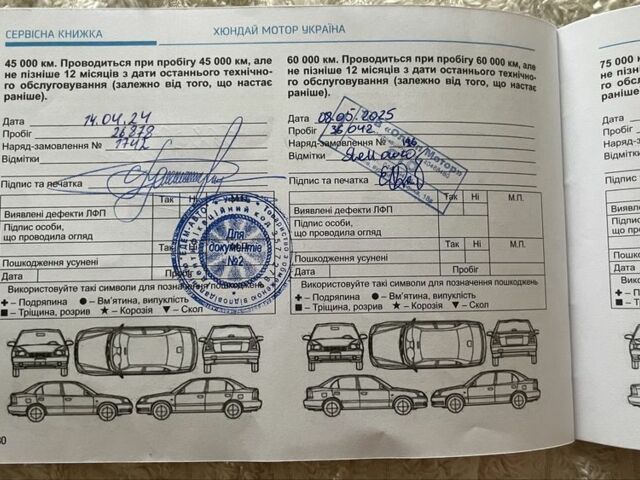 СЕРВІСНА КНИЖКА
ХЮНДАЙ МОТОР УКРАЇНА
45 000 км. Проводиться при пробігу 45 000 км, але
не пізніше 12 місяців з дати останнього технічно-
го обслуговування (залежно від того, що настає
раніше).
Дата 14.04.24
Пробіг 26 878
Наряд-замовлення № 7742
Відмітки
Підпис та печатка
Так Ні
Виявлені дефекти ЛФП
Підпис особи,
що проводила огляд
Пошкодження усунені
Дата Пробіг
Для
документів
№2
Використовуйте такі символи для позначення пошкоджень
+ – Подряпина ● – Вм'ятина, випуклість
■ – Тріщина, розрив ★ – Корозія ▼ – Скол
60 000 км. Проводиться при пробігу 60 000 км, але
не пізніше 12 місяців з дати останнього технічно-
го обслуговування (залежно від того, що настає
раніше).
Дата 08.05.2025
Пробіг 36 042
Наряд-замовлення №
Відмітки
Підпис та печатка
Так Ні М.П.
Виявлені дефекти ЛФП
Підпис особи,
що проводила огляд
Пошкодження усунені
Дата Пробіг
Використовуйте такі символи для позначення пошкоджень
+ – Подряпина ● – Вм'ятина, випуклість
■ – Тріщина, розрив ★ – Корозія ▼ – Скол
75 000